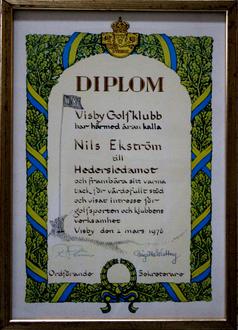 DIPLOM
Visby Golfklubb
har härmed äran kalla
Nils Ekström
till
Hedersledamot
och frambära sitt varma
tack för värdefullt stöd
och visat intresse för
golfsporten och klubbens
verksamhet
Visby den 2 mars 1976
Ordförande Sekreterare